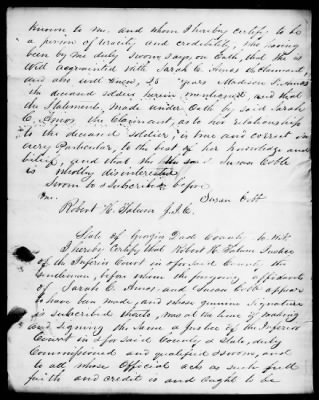 Known to me, and whom I hereby certify, to be
a person of veracity and credibility, she having
been by me duly sworn, says, on Oath, that she is
Well acquainted with Sarah C. Amos the Claimant,
and also well Knew, 25 years Madison R. Amos
the deceased soldier herein mentioned, and that
the Statements, made under Oath by said Sarah
C. Amos the Claimant, as to her relationship
to the deceased soldier, is true and correct in
every Particular, to the best of her Knowledge and
belief, and that she the said Susan Cobb
is wholly disinterested
Sworn to & subscribed before
me. Susan Cobb
Robert H. Tatum J.I.C.
State of Georgia Dade County to Wit
I hereby Certify that Robert H. Tatum Justice
of the Inferior Court in aforesaid County the
Gentleman, before whom the foregoing affidavits
of Sarah C. Amos, and Susan Cobb appear
to have been made, and whose genuine Signature
is subscribed thereto, was at the time of making
and signing the same a Justice of the Inferior
Court in & for said County & State, duly
Commissioned and qualified & sworn, and
to all whose Official acts as such full
faith and credit is and ought to be